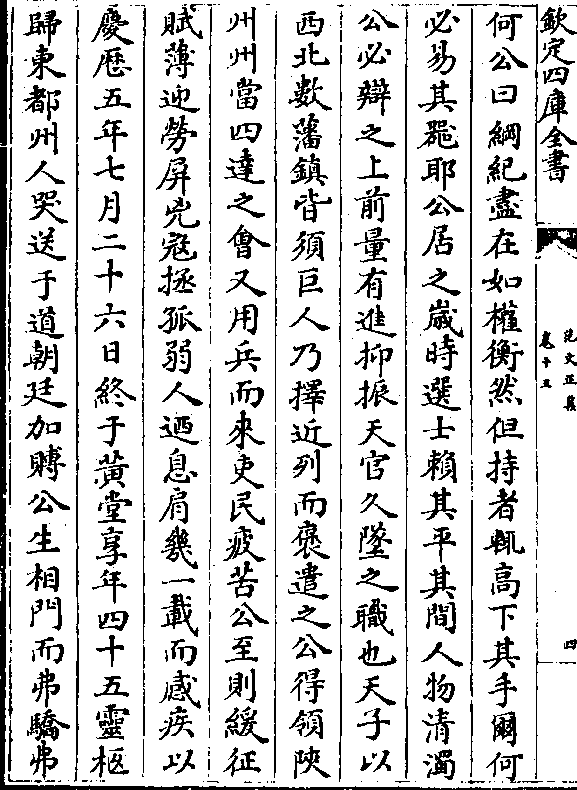 欽定四庫全書
范文正集
卷十三
四
何公曰綱紀盡在如權衡然但持者輒高下其手爾何
必易其器耶公居之歲時選士賴其平其間人物清濁
公必辯之上前量有進抑振天官久墜之職也天子以
西北數藩鎮皆須巨人乃擇近列而褒遣之公得領陜
州州當四達之會又用兵而來吏民疲苦公至則緩征
賦薄迎勞屏兇冦拯孤弱人迺息肩幾一載而感疾以
慶歴五年七月二十六日終于黃堂享年四十五靈柩
歸東都州人哭送于道朝廷加賻公生相門而弗驕弗